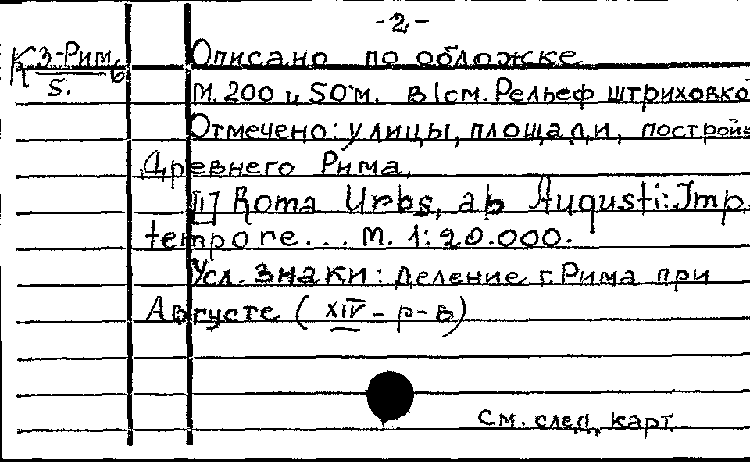 -2-
К 3-Рим. в
5.
Описано по обложке
М. 200 и 50 м. в 1 см. Рельеф штриховко
Отмечено: улицы, площади, построй
Древнего Рима.
Roma Urbs, ab Augusti: Imp.
tempore... М. 1:20.000.
Усл. знаки: Деление г. Рима при
Августе (XIV - р-в)
См. след. карт